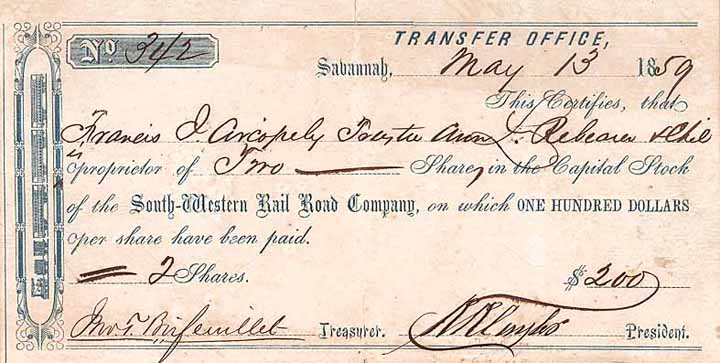 TRANSFER OFFICE,
No 342
Savannah, May 13 1859
This Certifies, that
Francis J. Trustee Ann &
is proprietor of Two Shares, in the Capital Stock
of the South-Western Rail Road Company, on which ONE HUNDRED DOLLARS
per share have been paid.
2 Shares. $200
Treasurer. President.